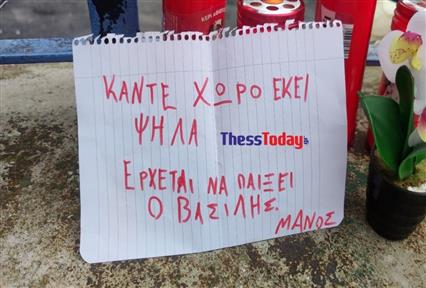 ΚΑΝΤΕ ΧΩΡΟ ΕΚΕΙ
ΨΗΛΑ
ThessToday.gr
ΕΡΧΕΤΑΙ ΝΑ ΠΑΙΞΕΙ
Ο ΒΑΣΙΛΗΣ.
ΜΑΝΟΣ